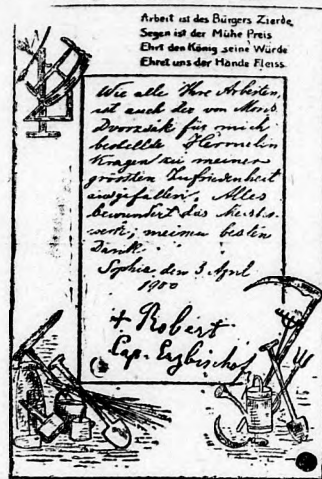 Arbeit ist des Bürgers Zierde
Segen ist der Mühe Preis
Ehrt den König seine Würde
Ehret uns der Hände Fleiss.
Wie alle Ihre Arbeiten,
ist auch der von Mons.
Dvorzak für mich
bestellte Hermelin
Kragen zu meiner
grössten Zufriedenheit
ausgefallen, Alles
bewundert das Meister-
werk; meinen besten
Dank.
Sophia den 3 April
1900
+ Robert
Cap. Erzbischof